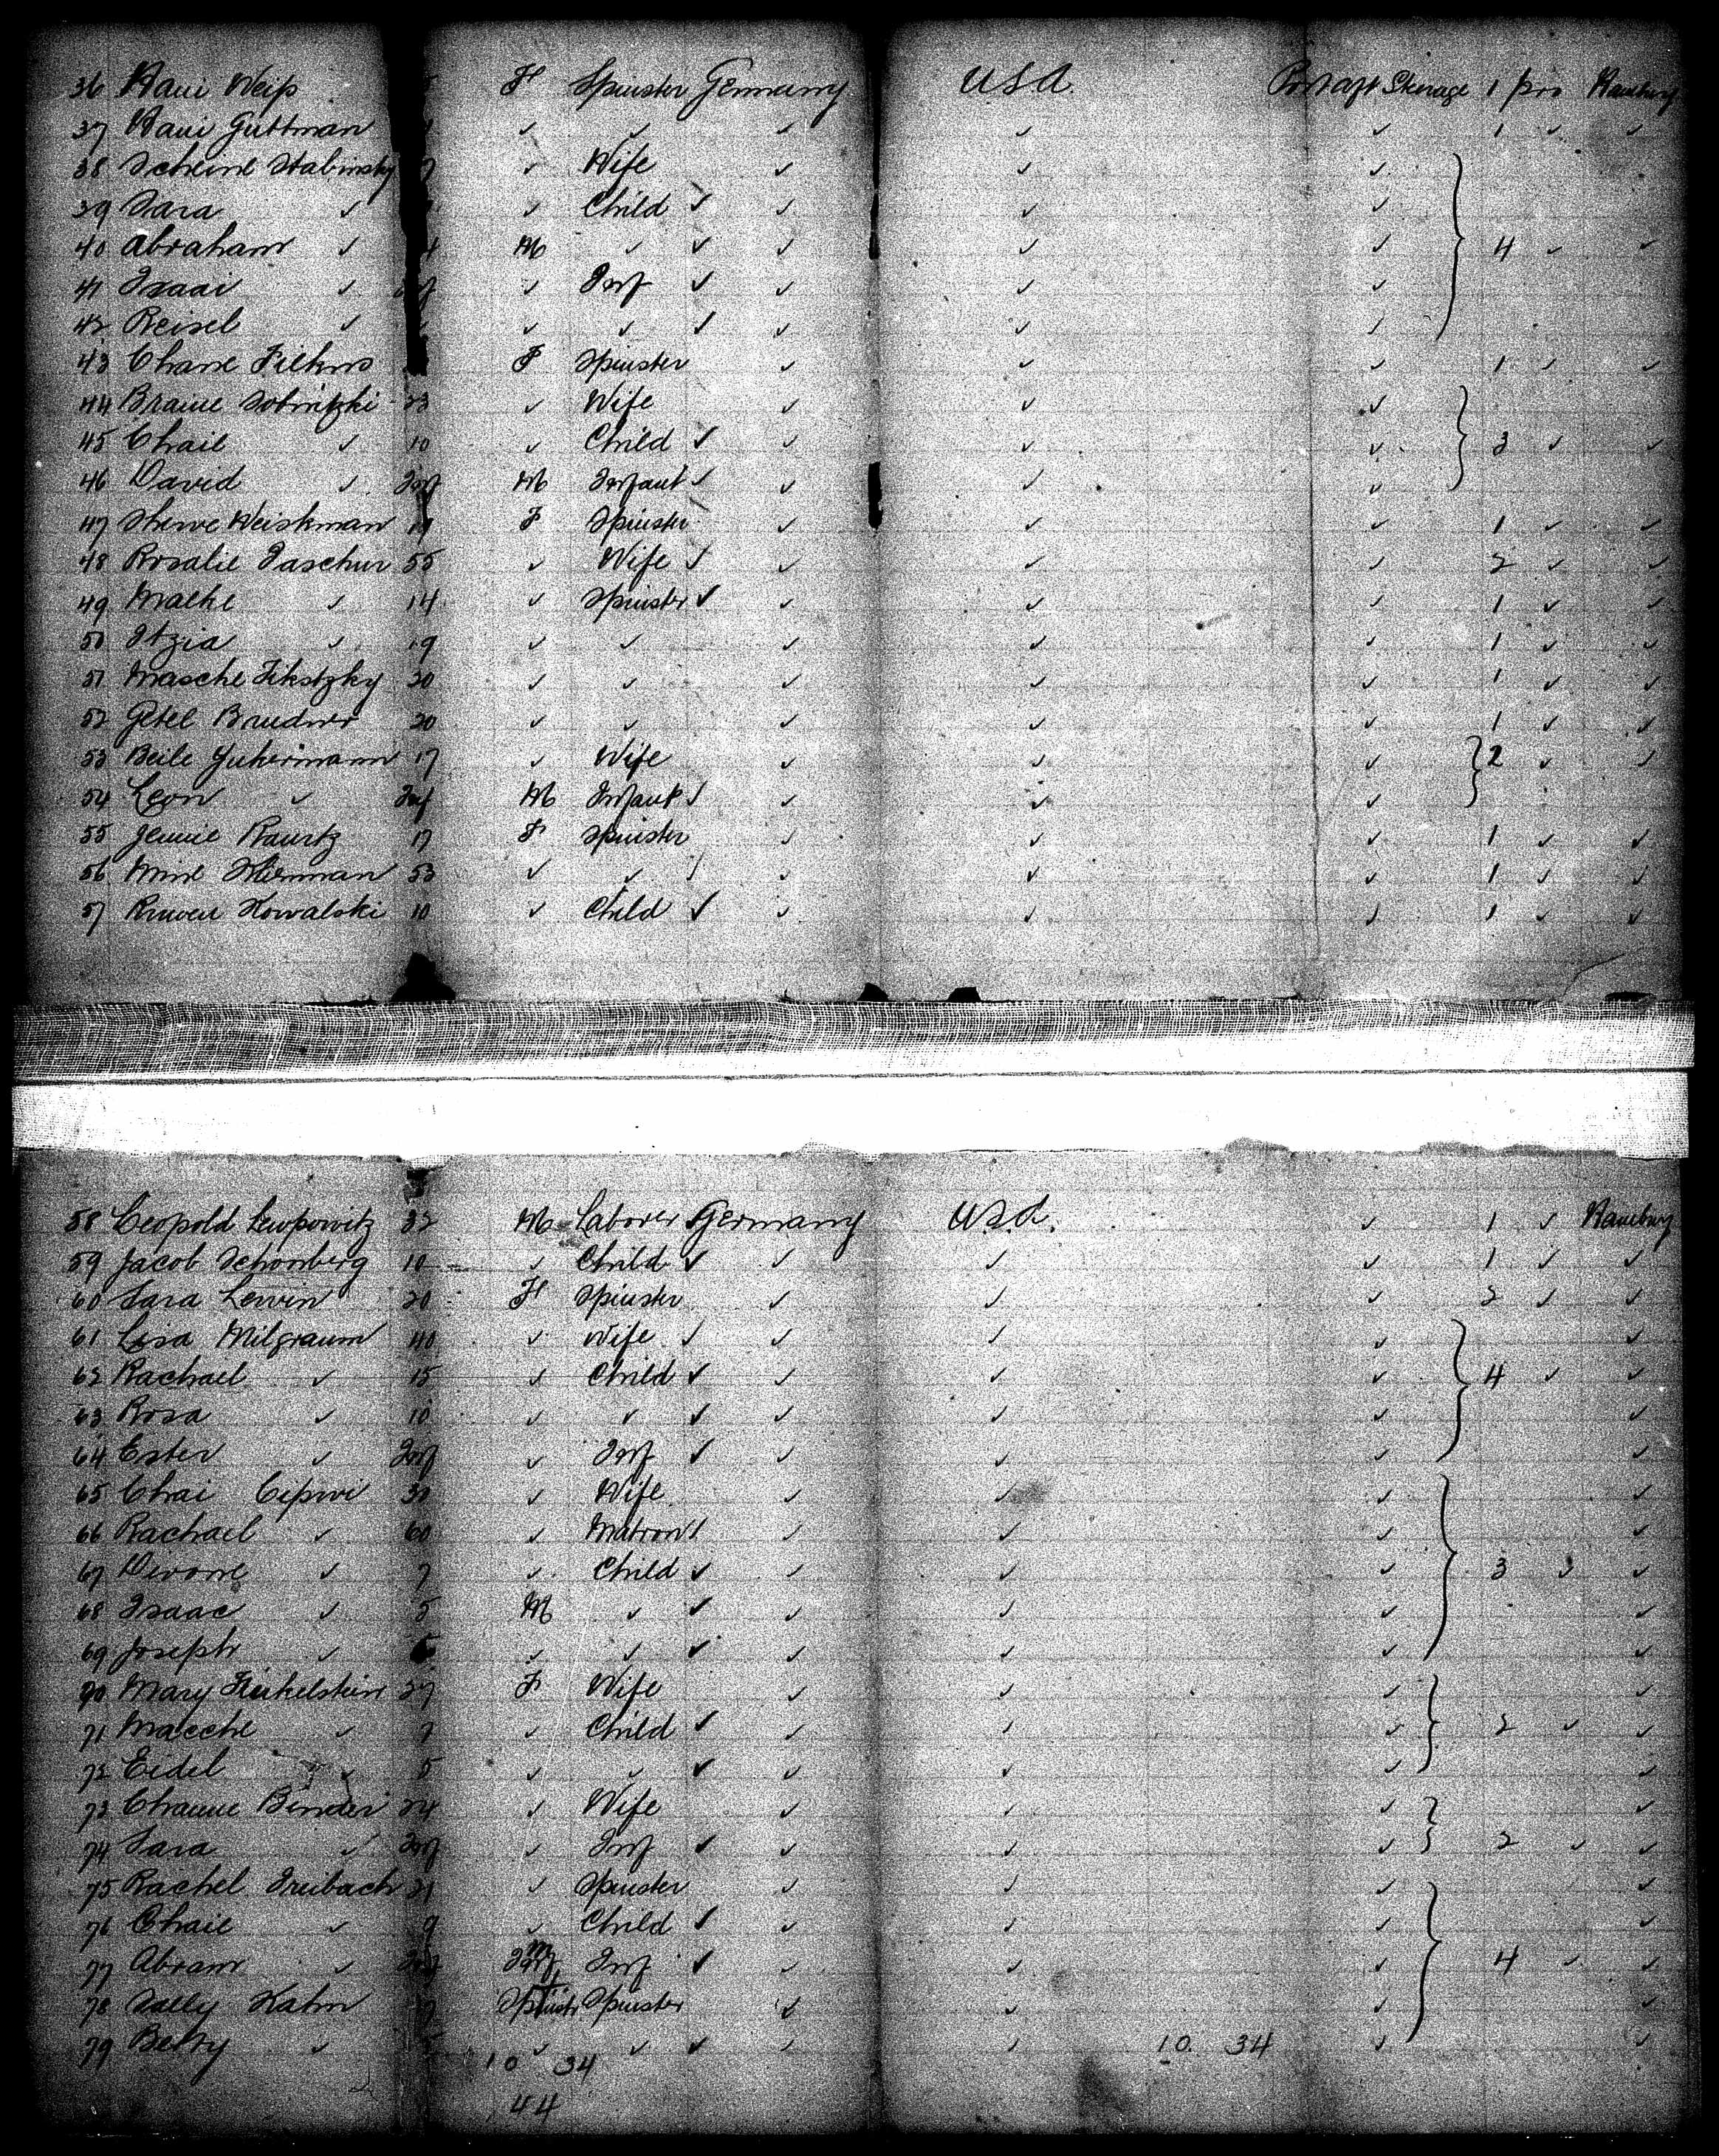 36 Hani Weiß F Spinster Germany USA Port aft Steerage 1 pro Hamburg
37 Hani Guttman ✓ ✓ ✓ ✓ ✓ 1 ✓ ✓
38 Scheine Stabinsky ✓ Wife ✓ ✓ ✓
39 Sara ✓ ✓ Child ✓ ✓ ✓ ✓
40 Abraham ✓ M ✓ ✓ ✓ ✓ ✓ 4 ✓ ✓
41 Isaai ✓ ✓ Inf ✓ ✓ ✓ ✓
42 Reisel ✓ ✓ ✓ ✓ ✓ ✓ ✓
43 Chane F Spinster ✓ ✓ ✓ 1 ✓ ✓
44 Braine Sotnitzki 23 ✓ Wife ✓ ✓ ✓
45 Chaie ✓ 10 ✓ Child ✓ ✓ ✓ ✓ 3 ✓ ✓
46 David ✓ Inf M Infant ✓ ✓ ✓ ✓
47 Weiskman F Spinster ✓ ✓ ✓ 1 ✓ ✓
48 Rosalie Paschur 55 ✓ Wife ✓ ✓ ✓ ✓ 2 ✓ ✓
49 Malke ✓ 14 ✓ Spinster ✓ ✓ ✓ ✓ 1 ✓ ✓
50 Itzia ✓ 19 ✓ ✓ ✓ ✓ ✓ 1 ✓ ✓
51 Masche Fikstzky 30 ✓ ✓ ✓ ✓ ✓ 1 ✓ ✓
52 Getel Brudner 20 ✓ ✓ ✓ ✓ ✓ 1 ✓ ✓
53 Beile Zukermann 17 ✓ Wife ✓ ✓ ✓ 2 ✓ ✓
54 Leon ✓ Inf M Infant ✓ ✓ ✓ ✓
55 Jennie 17 F Spinster ✓ ✓ ✓ 1 ✓ ✓
56 Mine 53 ✓ ✓ ✓ ✓ ✓ ✓ 1 ✓ ✓
57 Ruwen Kowalski 10 ✓ Child ✓ ✓ ✓ ✓ 1 ✓ ✓
58 Leopold Lewpowitz 32 M Laborer Germany USA ✓ 1 ✓ Hamburg
59 Jacob Schonberg 10 ✓ Child ✓ ✓ ✓ ✓ 1 ✓ ✓
60 Sara Lewin 20 F Spinster ✓ ✓ ✓ 2 ✓ ✓
61 Lisa Milgraum 40 ✓ Wife ✓ ✓ ✓ ✓ ✓
62 Rachael ✓ 15 ✓ Child ✓ ✓ ✓ ✓ 4 ✓ ✓
63 Rosa ✓ 10 ✓ ✓ ✓ ✓ ✓ ✓ ✓
64 Ester ✓ Inf ✓ Inf ✓ ✓ ✓ ✓ ✓
65 Chai Cipwi 30 ✓ Wife ✓ ✓ ✓ ✓
66 Rachael ✓ 60 ✓ Matron ✓ ✓ ✓ ✓ ✓
67 Divone ✓ 7 ✓ Child ✓ ✓ ✓ ✓ 3 ✓ ✓
68 Isaac ✓ 5 M ✓ ✓ ✓ ✓ ✓ ✓
69 Joseph ✓ ✓ ✓ ✓ ✓ ✓ ✓ ✓
70 Mary Finkelstein 27 F Wife ✓ ✓ ✓ ✓
71 Macche ✓ 7 ✓ Child ✓ ✓ ✓ ✓ 2 ✓ ✓
72 Eidel ✓ 5 ✓ ✓ ✓ ✓ ✓ ✓ ✓
73 Chaune Binder 24 ✓ Wife ✓ ✓ ✓ ✓
74 Sara ✓ Inf ✓ Inf ✓ ✓ ✓ ✓ 2 ✓ ✓
75 Rachel 21 ✓ Spinster ✓ ✓ ✓ ✓
76 Chaie ✓ 9 ✓ Child ✓ ✓ ✓ ✓ ✓
77 Abram ✓ Inf M Inf ✓ ✓ ✓ ✓ 4 ✓ ✓
78 Sally Kahn Spinster ✓ ✓ ✓ ✓
79 Betty ✓ ✓ ✓ ✓ ✓ ✓ 10. 34 ✓ ✓
10 34
44